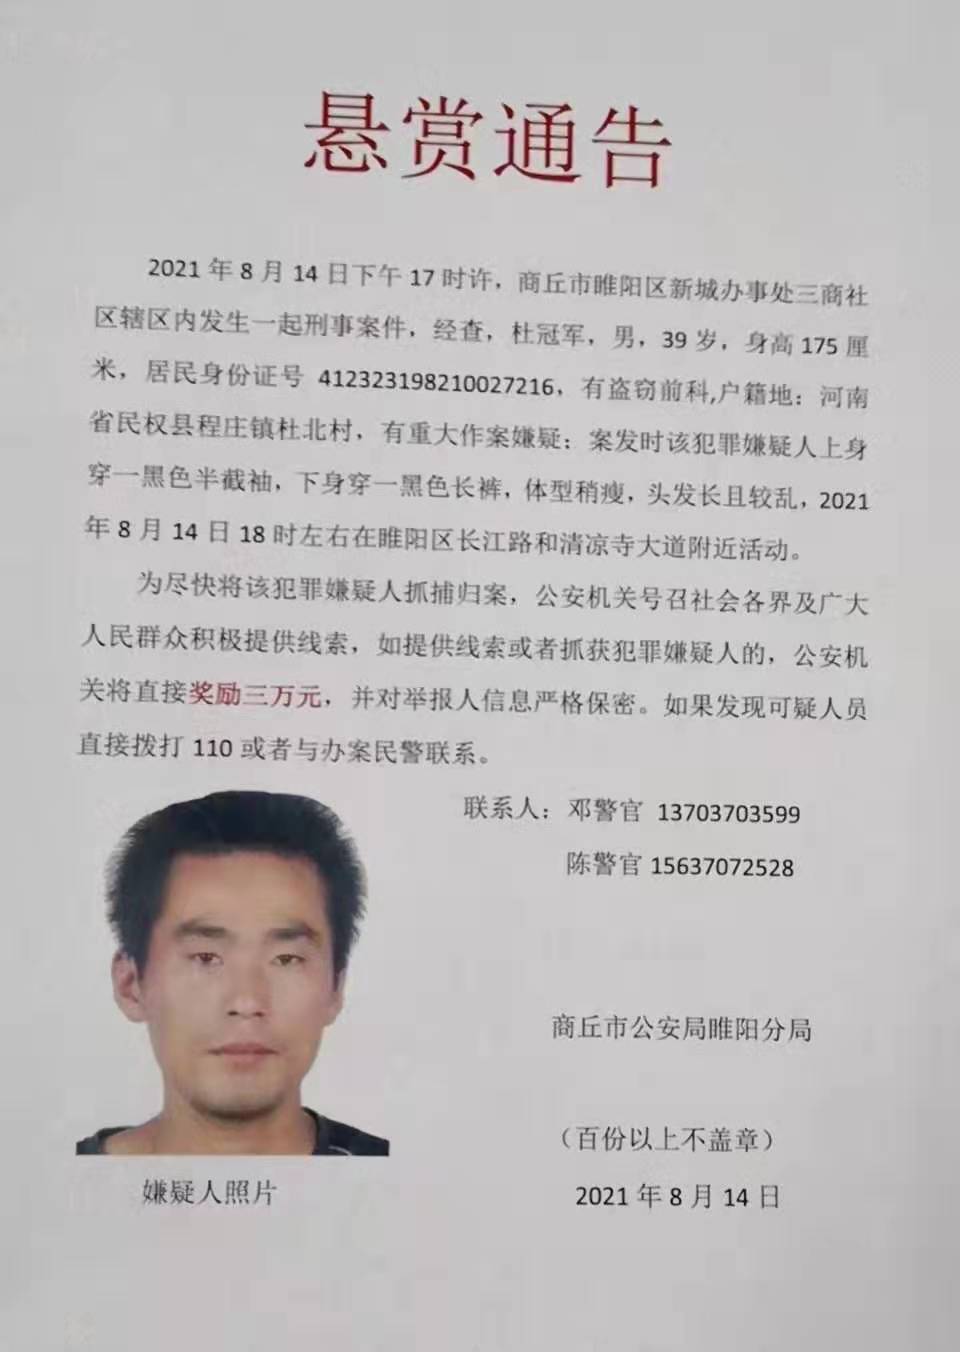 悬赏通告
2021 年 8 月 14 日下午 17 时许，商丘市睢阳区新城办事处三商社
区辖区内发生一起刑事案件，经查，杜冠军，男，39 岁，身高 175 厘
米，居民身份证号 412323198210027216，有盗窃前科,户籍地：河南
省民权县程庄镇杜北村，有重大作案嫌疑；案发时该犯罪嫌疑人上身
穿一黑色半截袖，下身穿一黑色长裤，体型稍瘦，头发长且较乱，2021
年 8 月 14 日 18 时左右在睢阳区长江路和清凉寺大道附近活动。
为尽快将该犯罪嫌疑人抓捕归案，公安机关号召社会各界及广大
人民群众积极提供线索，如提供线索或者抓获犯罪嫌疑人的，公安机
关将直接奖励三万元，并对举报人信息严格保密。如果发现可疑人员
直接拨打 110 或者与办案民警联系。
联系人：邓警官 13703703599
陈警官 15637072528
商丘市公安局睢阳分局
（百份以上不盖章）
2021 年 8 月 14 日
嫌疑人照片